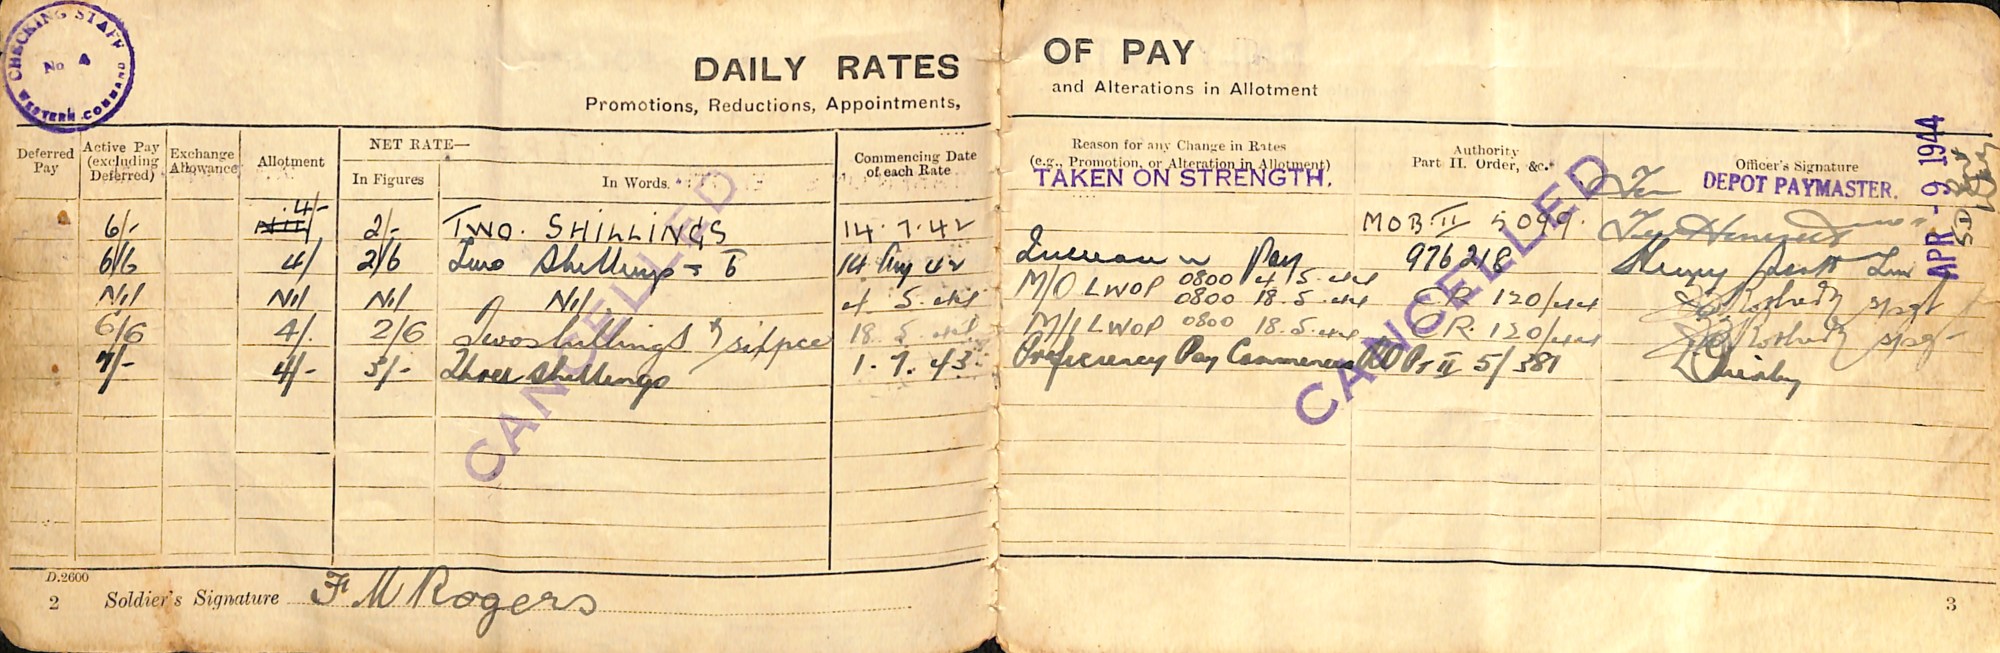 CHECKING STAFF
No 4
WESTERN COMMAND
DAILY RATES OF PAY
Promotions, Reductions, Appointments, and Alterations in Allotment
Deferred Pay
Active Pay (excluding Deferred)
Exchange Allowance
Allotment
NET RATE—
In Figures
In Words.
Commencing Date of each Rate
Reason for any Change in Rates (e.g., Promotion, or Alteration in Allotment)
Authority Part II. Order, &c.
Officer's Signature
TAKEN ON STRENGTH.
DEPOT PAYMASTER.
APR - 9 1944
6/- 4/- 2/- TWO. SHILLINGS 14.7.42 MOB II 5099.
6/6 4/ 2/6 Two Shillings - 6 14 Aug 42 Pay 976218
Nil Nil Nil Nil 4 5. M/O LWOP 0800 4.5.44
0800 18.5.44 CR 120/44
6/6 4/. 2/6 Two shillings & sixpce 18.5. M/I LWOP 0800 18.5.44 CR. 120/44
7/- 4/- 3/- Three shillings 1.7.43. Proficiency Pay II 5/381
CANCELLED
CANCELLED
D.2600
2 Soldier's Signature F M Rogers
3